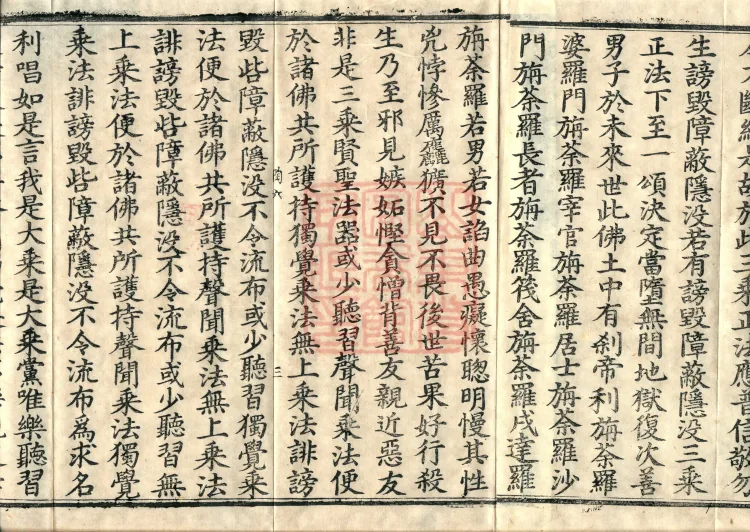 斷絕是故於此三乘正法應普信敬勿
生謗毀障蔽隱没若有謗毀障蔽隱没三乘
正法下至一頌決定當墮無間地獄復次善
男子於未來世此佛土中有刹帝利旃荼羅
婆羅門旃荼羅宰官旃荼羅居士旃荼羅沙
門旃荼羅長者旃荼羅筏舍旃荼羅戍達羅
旃荼羅若男若女諂曲愚癡懷聰明慢其性
兇悖慘厲麤獷不見不畏後世苦果好行殺
生乃至邪見嫉妬慳貪憎背善友親近惡友
非是三乘賢聖法器或少聽習聲聞乘法便
於諸佛共所護持獨覺乘法無上乘法誹謗
六
三
毀呰障蔽隱没不令流布或少聽習獨覺乘
法便於諸佛共所護持聲聞乘法無上乘法
誹謗毀呰障蔽隱没不令流布或少聽習無
上乘法便於諸佛共所護持聲聞乘法獨覺
乘法誹謗毀呰障蔽隱没不令流布爲求名
利唱如是言我是大乘是大乘黨唯樂聽習